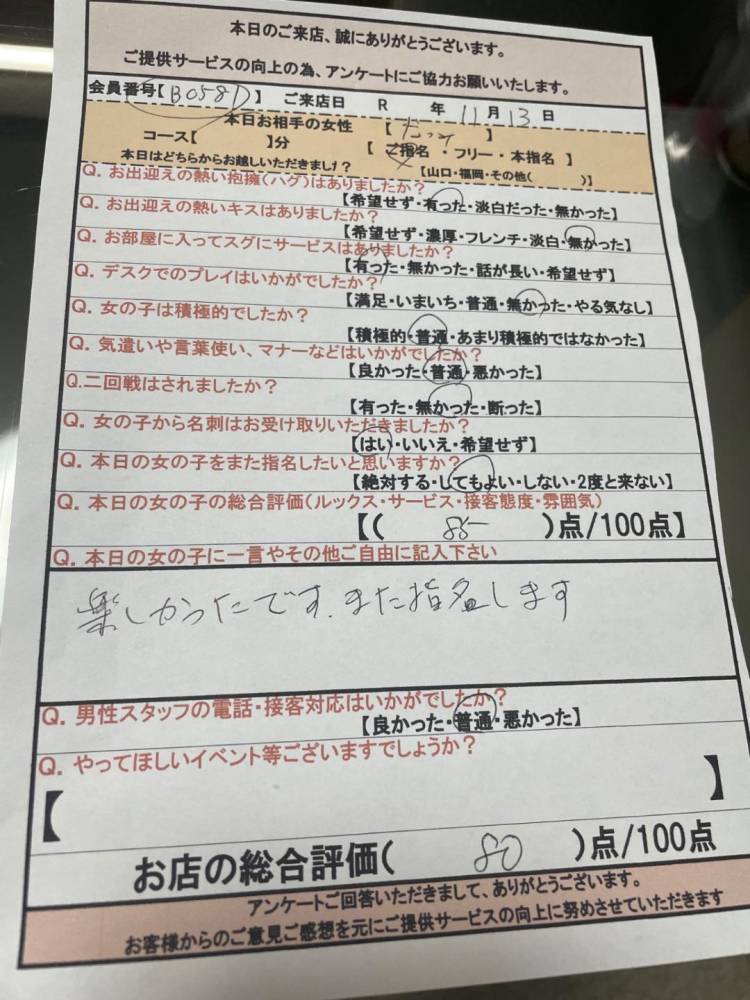 本日のご来店、誠にありがとうございます。
ご提供サービスの向上の為、アンケートにご協力お願いいたします。
会員番号【B058】 ご来店日 R 年 11月 13日
本日お相手の女性 【 】
コース【 】分 【ご指名・フリー・本指名】
本日はどちらからお越しいただきました? 【山口・福岡・その他( )】
Q. お出迎えの熱い抱擁(ハグ)はありましたか?
【希望せず・有った・淡白だった・無かった】
Q. お出迎えの熱いキスはありましたか?
【希望せず・濃厚・フレンチ・淡白・無かった】
Q. お部屋に入ってスグにサービスはありましたか?
【有った・無かった・話が長い・希望せず】
Q. デスクでのプレイはいかがでしたか?
【満足・いまいち・普通・無かった・やる気なし】
Q. 女の子は積極的でしたか?
【積極的・普通・あまり積極的ではなかった】
Q. 気遣いや言葉使い、マナーなどはいかがでしたか?
【良かった・普通・悪かった】
Q.二回戦はされましたか?
【有った・無かった・断った】
Q. 女の子から名刺はお受け取りいただきましたか?
【はい・いいえ・希望せず】
Q. 本日の女の子をまた指名したいと思いますか?
【絶対する・してもよい・しない・2度と来ない】
Q. 本日の女の子の総合評価(ルックス・サービス・接客態度・雰囲気)
【( 85 )点/100点】
Q. 本日の女の子に一言やその他ご自由に記入下さい
楽しかったです。また指名します
Q. 男性スタッフの電話・接客対応はいかがでしたか?
【良かった・普通・悪かった】
Q. やってほしいイベント等ございますでしょうか?
【 】
お店の総合評価( 80 )点/100点
アンケートご回答いただきまして、ありがとうございます。
お客様からのご意見ご感想を元にご提供サービスの向上に努めさせていただきます